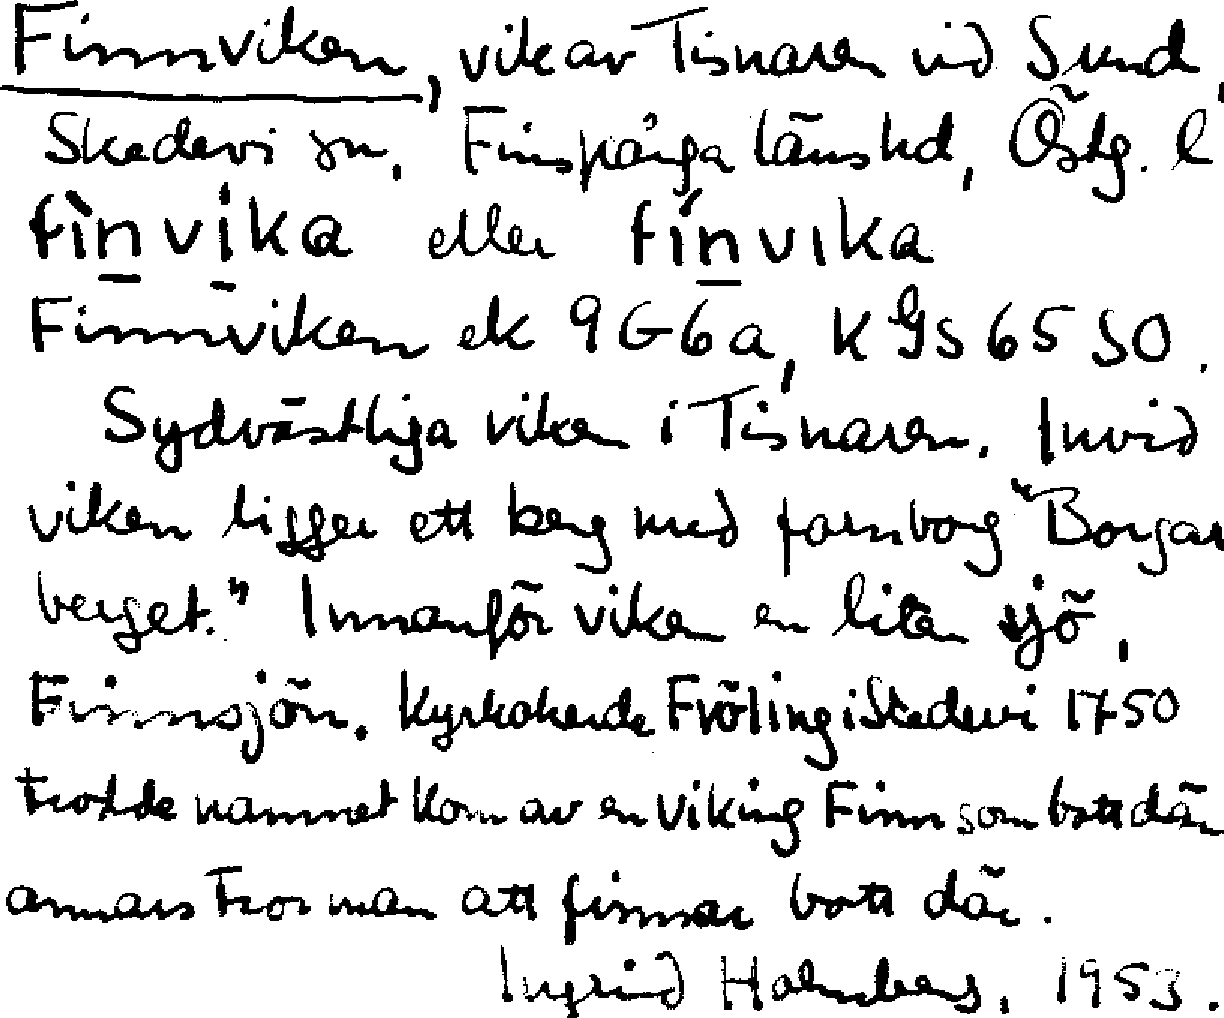 Finnviken, vik av Tisnaren vid Sund,
Skedevi sn, Finspånga länshd, Östg. l
fìnvika eller fínvika
Finnviken ek 9G6a, K GS 65 SO.
Sydvästliga viken i Tisnaren. Invid
viken ligger ett berg med fornborg "Borgar
berget." Innanför viken en liten sjö,
Finnsjön. Kyrkoherde Fröling i Skedevi 1750
trodde namnet kom av en viking Finn som bott där
annars tror man att finnar bott där.
Ingrid Holmberg, 1953.